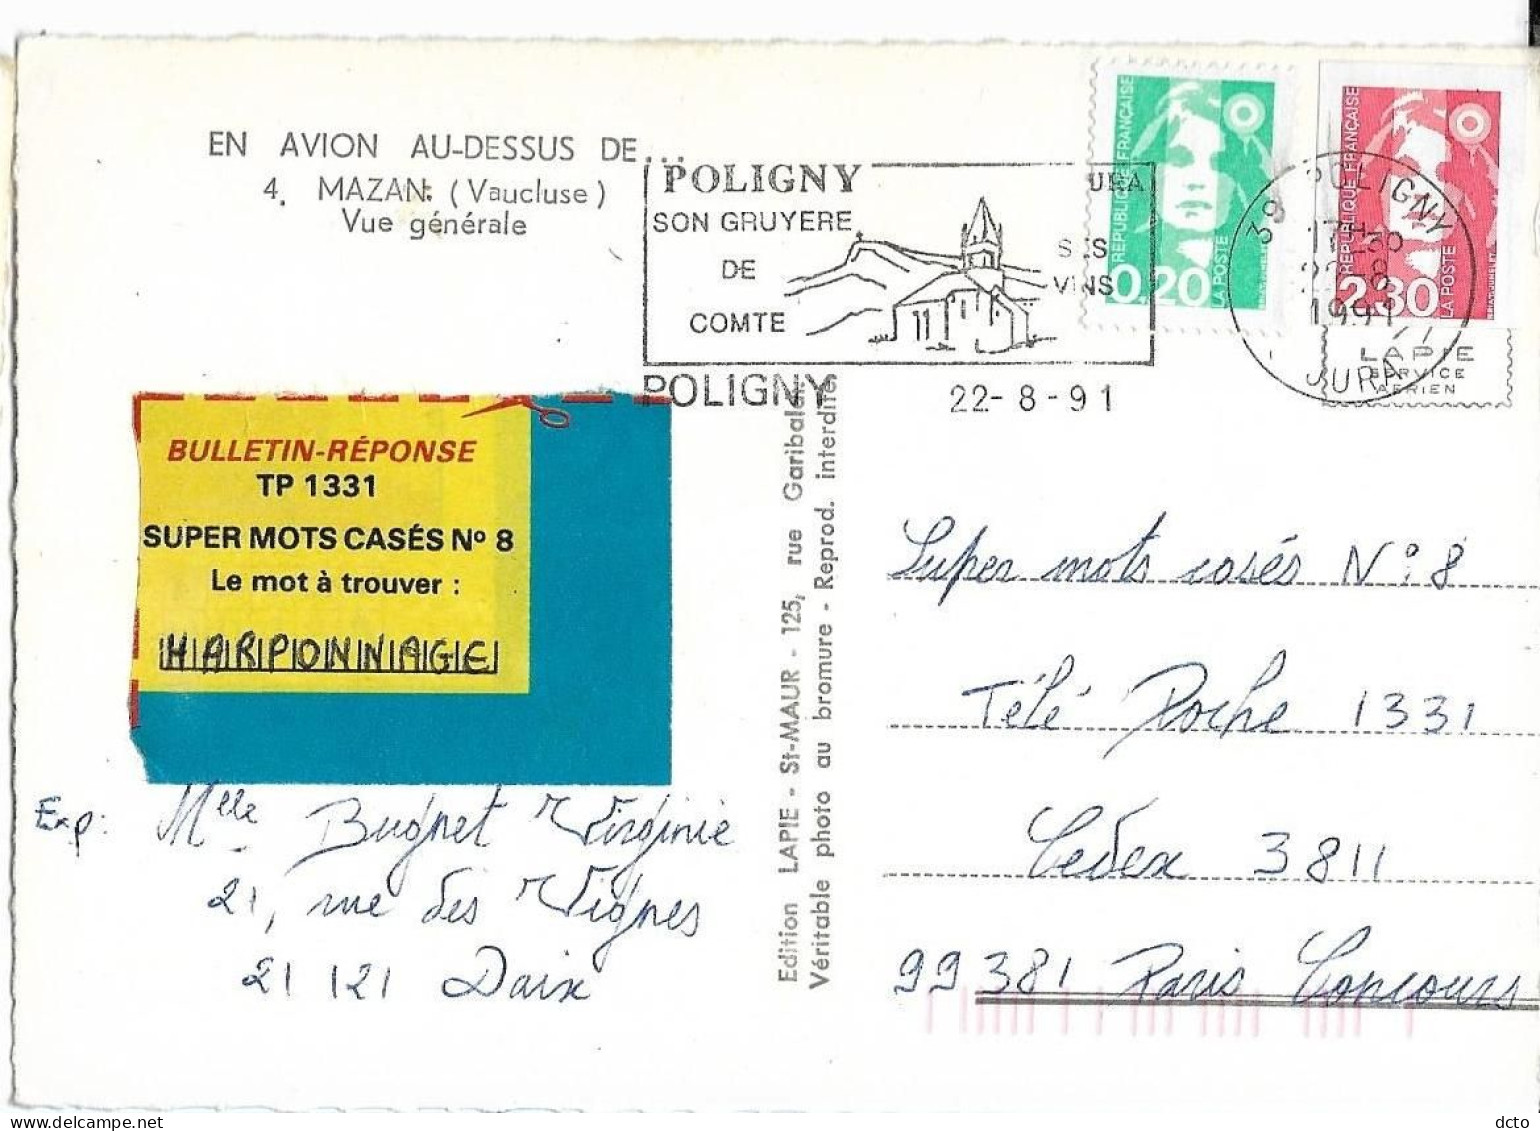 EN AVION AU-DESSUS DE...
4. MAZAN (Vaucluse)
Vue générale
POLIGNY
SON GRUYERE
DE
COMTE
JURA
SES
VINS
POLIGNY
22-8-91
RÉPUBLIQUE FRANÇAISE
0,20
LA POSTE
RÉPUBLIQUE FRANÇAISE
2,30
LA POSTE
39 POLIGNY
17H30
22-8
1991
JURA
LAPIE
SERVICE
AERIEN
BULLETIN-RÉPONSE
TP 1331
SUPER MOTS CASÉS Nº 8
Le mot à trouver :
HARPONNAGE
Exp: Mlle Bugnet Virginie
21, rue des Vignes
21121 Daix
Edition LAPIE - St-MAUR - 125, rue Garibaldi
Véritable photo au bromure - Reprod. interdite
Super mots casés N° 8
Télé Poche 1331
Cedex 3811
99381 Paris Concours
dcto